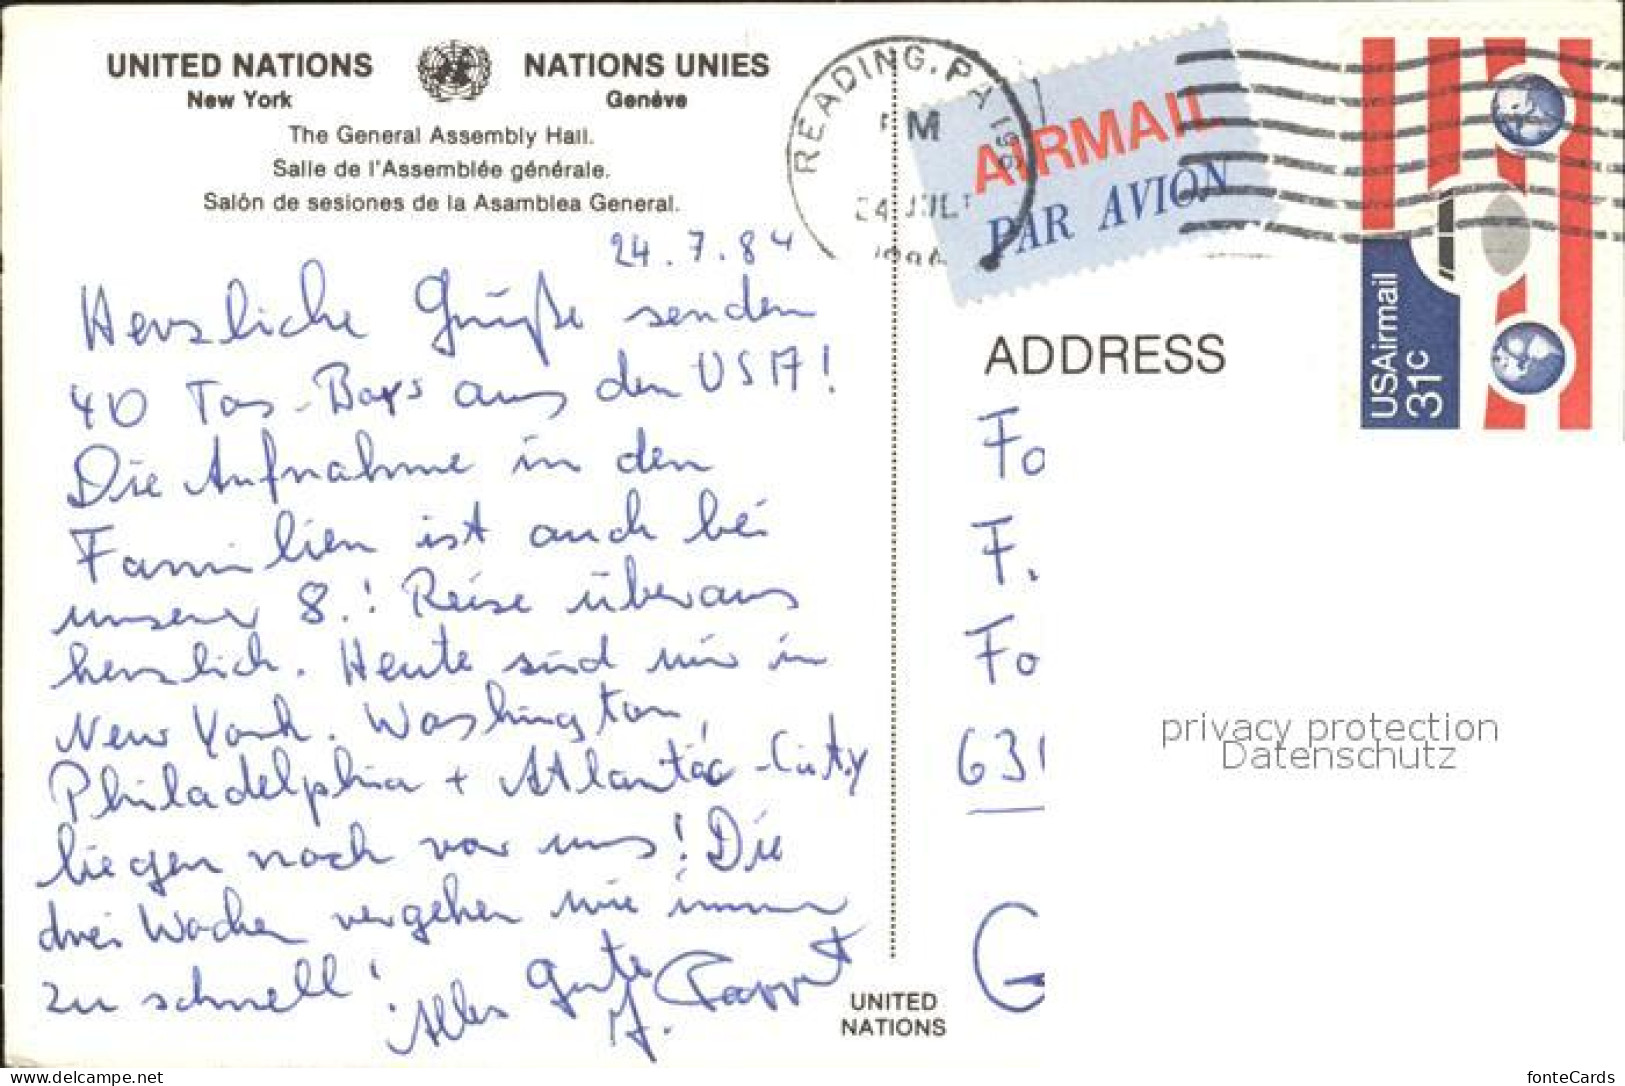 UNITED NATIONS NATIONS UNIES
New York Genève
The General Assembly Hall.
Salle de l'Assemblée générale.
Salón de sesiones de la Asamblea General.
24.7.84
Herzliche Grüße senden
40 Tos-Boys aus den USA!
Die Aufnahme in den
Familien ist auch bei
unserer 8.! Reise überaus
herzlich. Heute sind wir in
New York. Washington,
Philadelphia + Atlantic-City
liegen noch vor uns! Die
drei Wochen vergehen wie immer
zu schnell!
Alles Gute
READING, PA
PM
24 JUL
AIRMAIL
PAR AVION
USAirmail
31c
ADDRESS
Fo
F.
Fo
631
G
privacy protection
Datenschutz
UNITED
NATIONS
www.delcampe.net
fonteCards